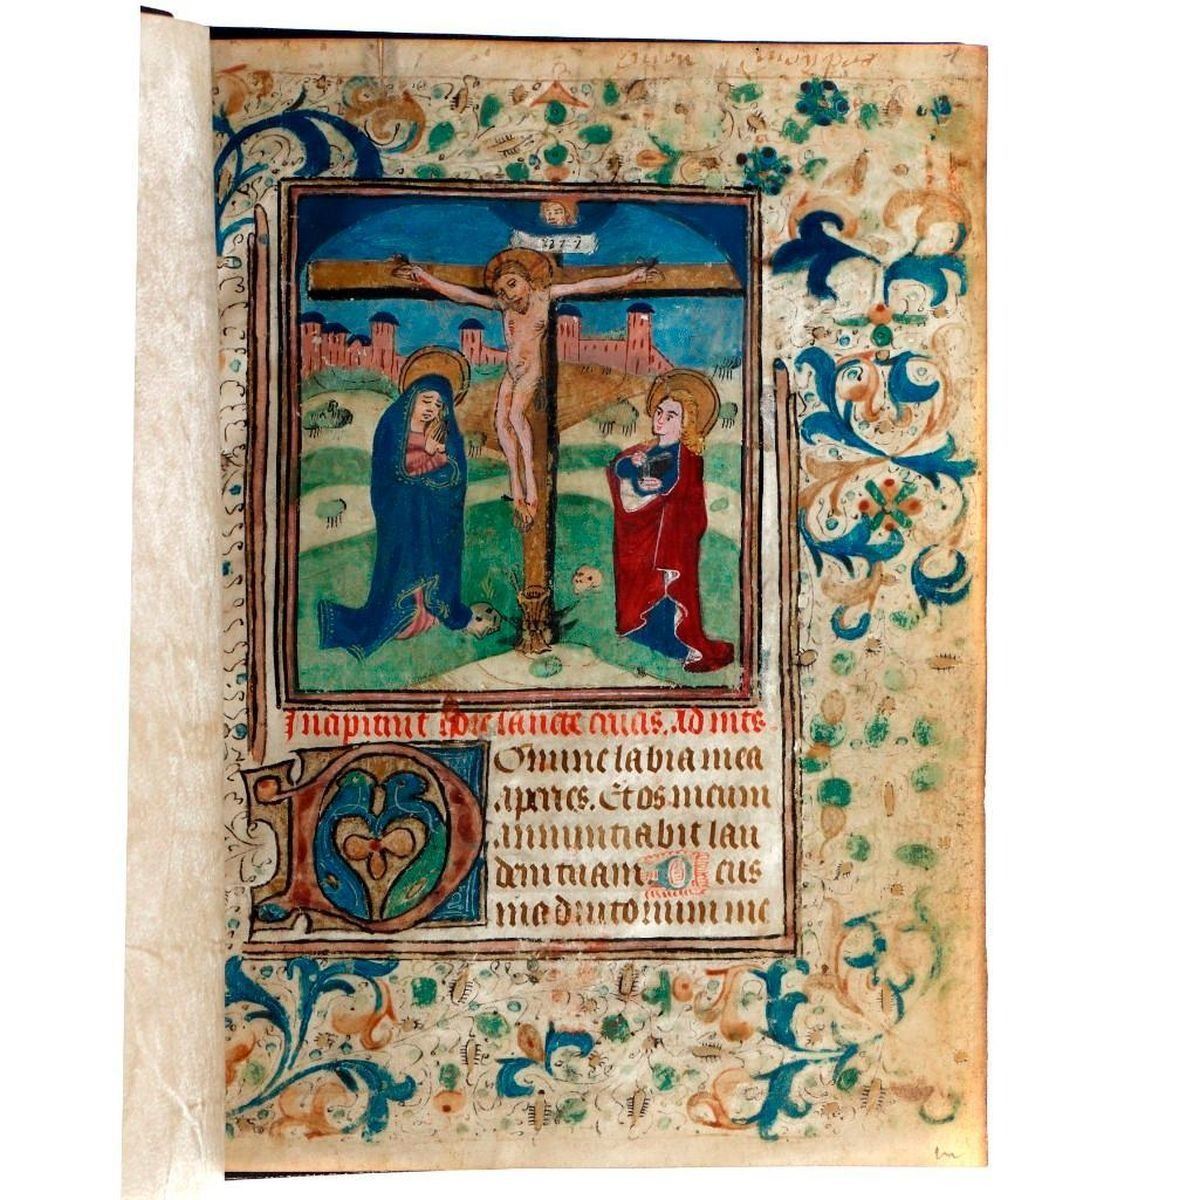 Incipiunt hore sancte crucis. Ad mts.
Domine labia mea
aperies. Et os meum
annunciabit lau
dem tuam Deus
in adiutorium me